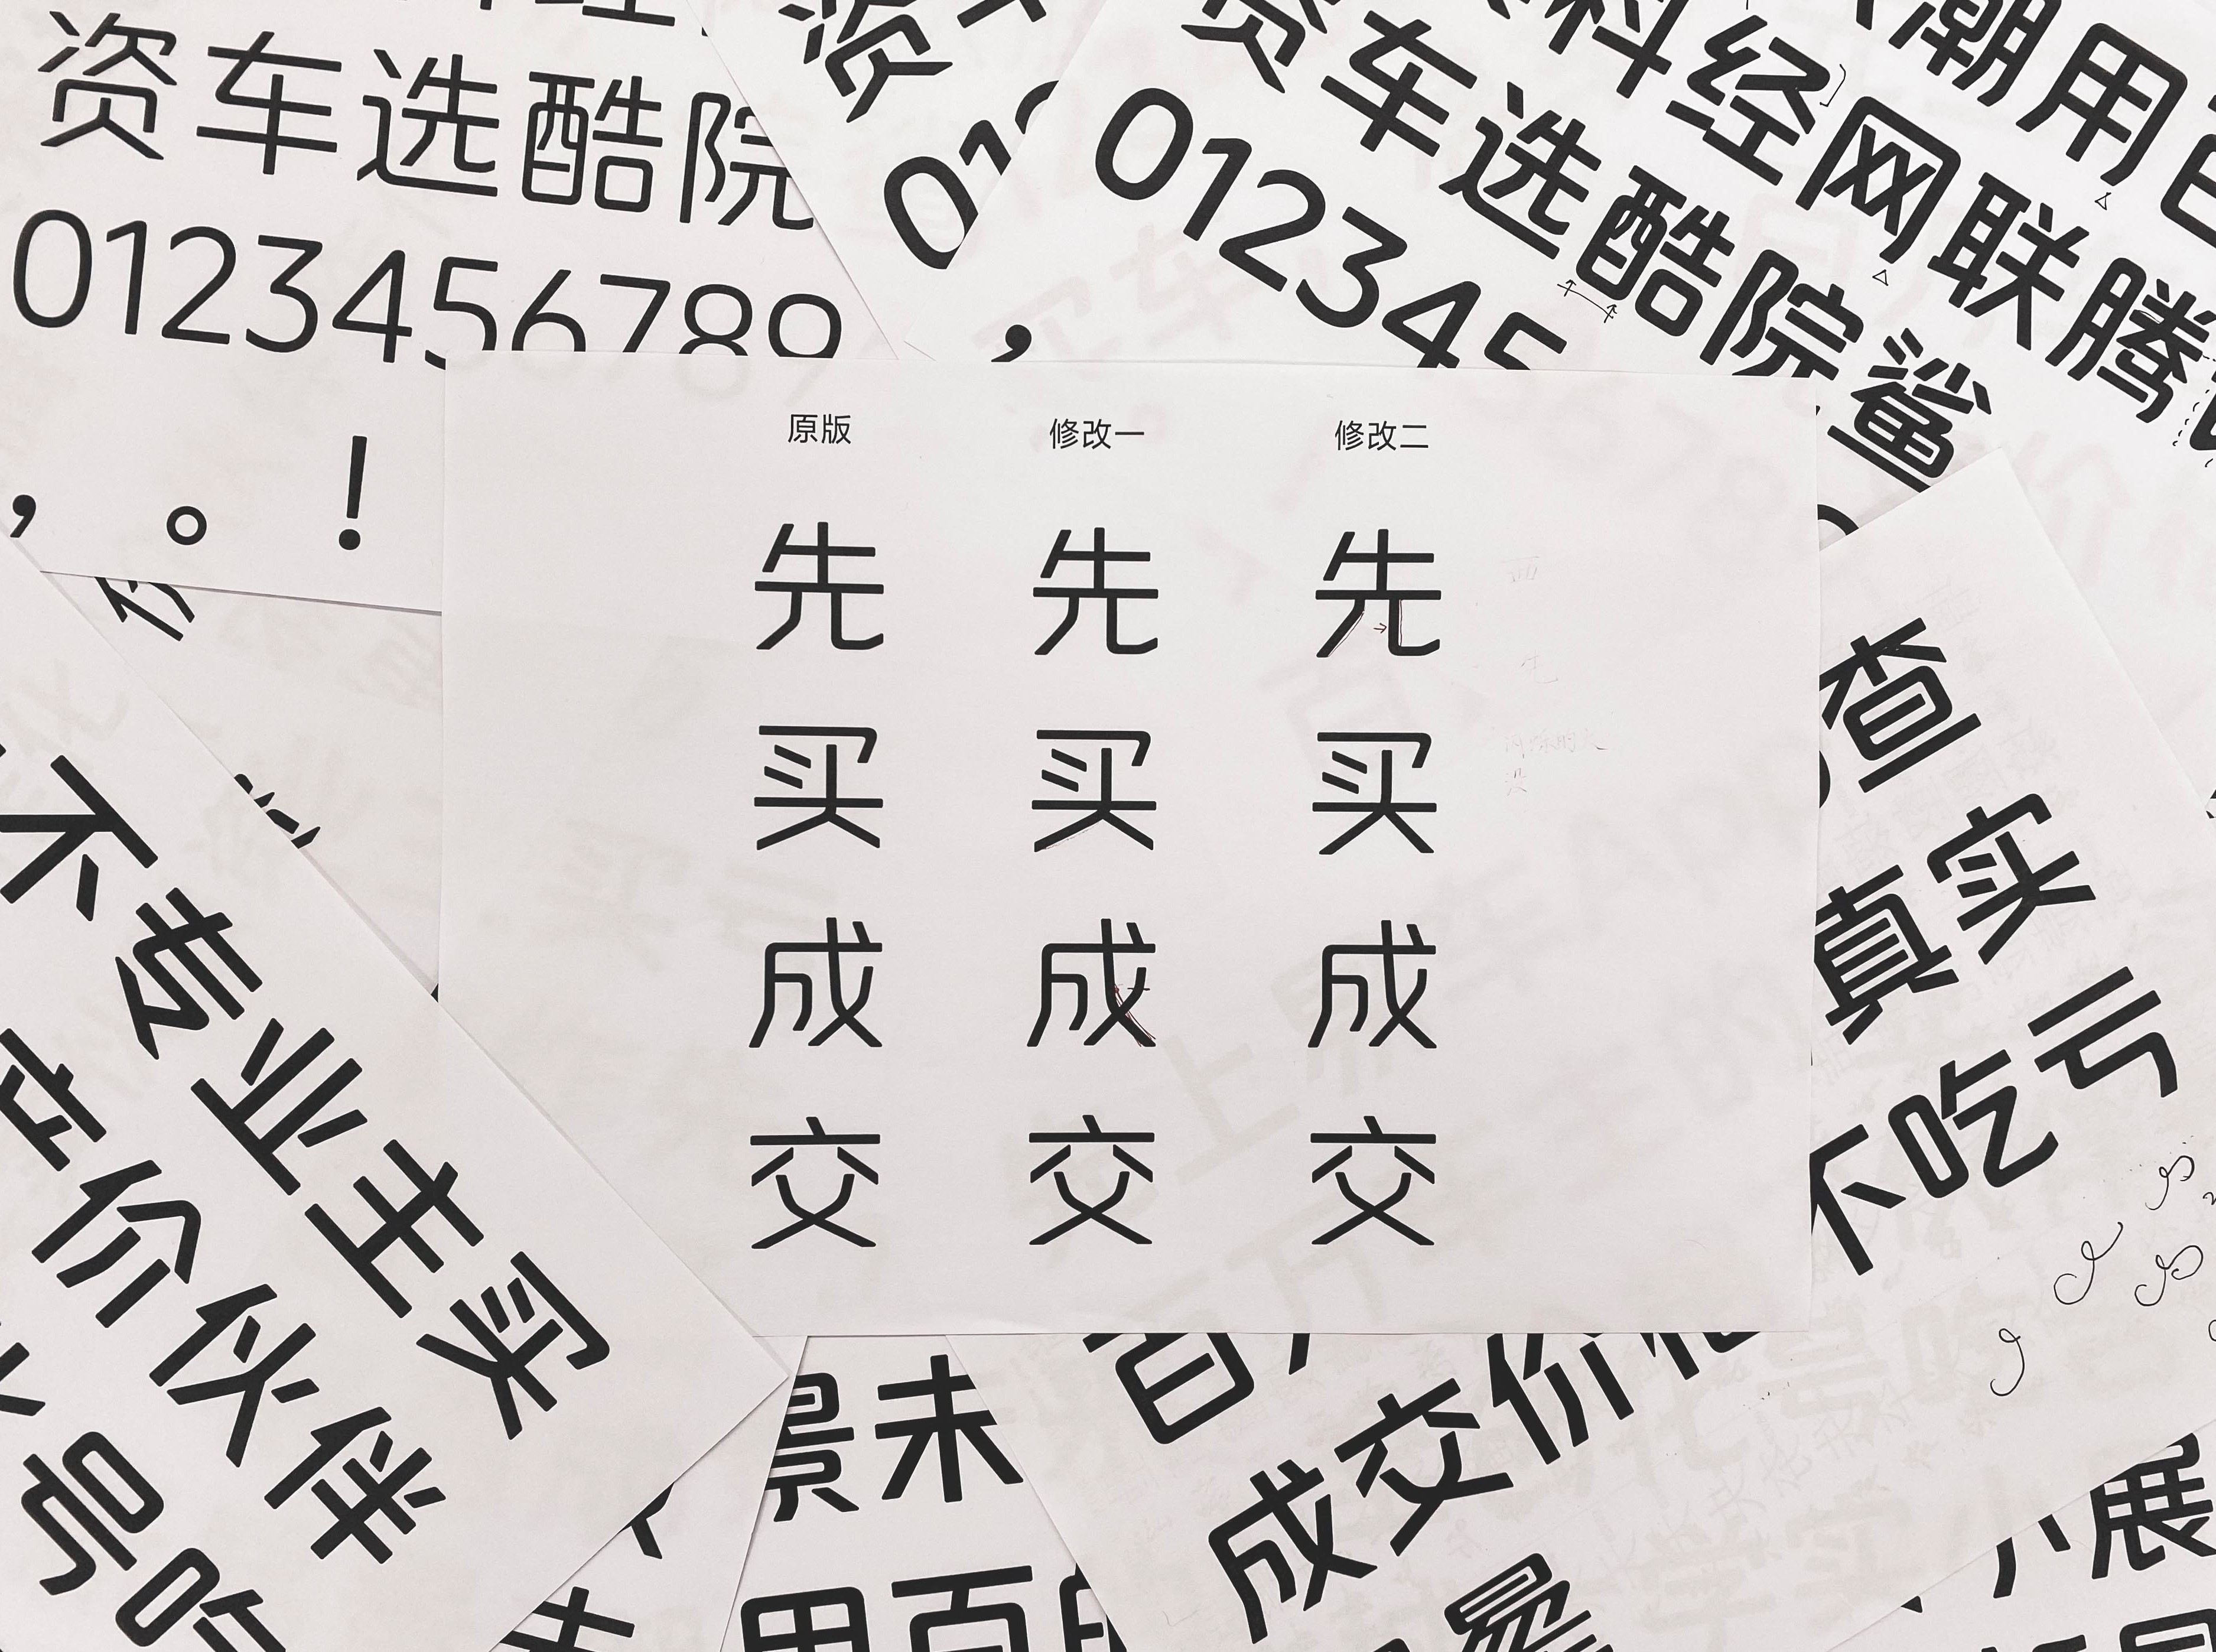 资车选酷院
0123456789
，。！
资
01
，
潮用
科经网联腾
资车选酷院鲨
012345
原版 修改一 修改二
先 先 先
买 买 买
成 成 成
交 交 交
查实
真
不吃亏
不专业主买
产价伙伴
号吃
景未
用百
百
成交价
景
展